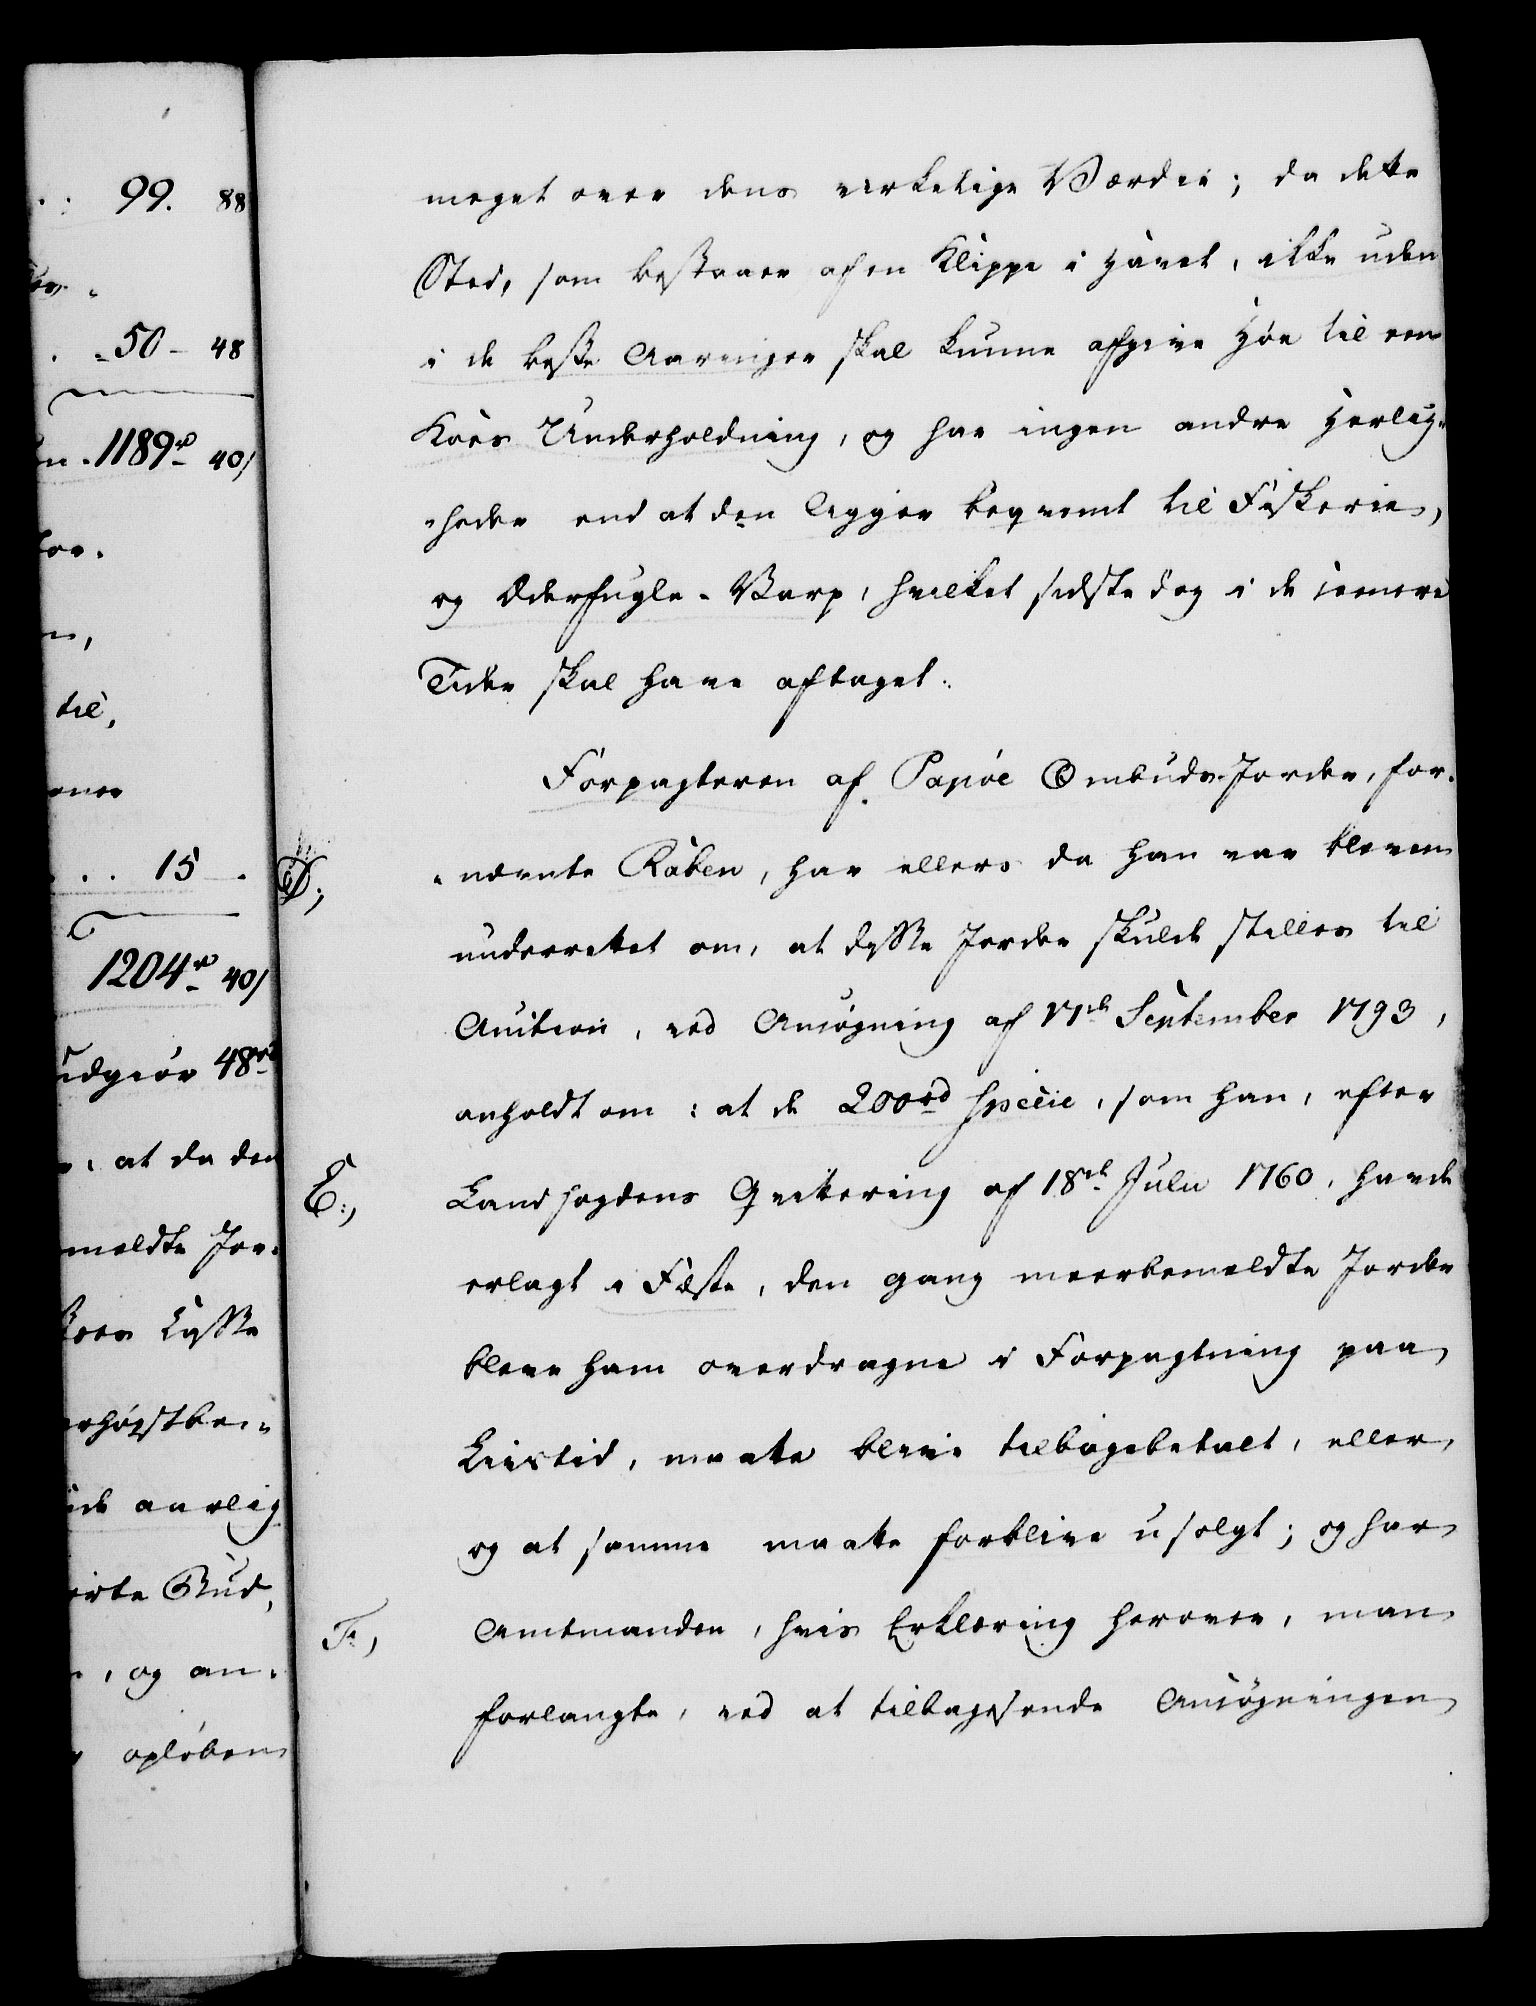 99. 88
50 - 48
1189rd 40/
til,
15
1204rd 40/
udgiör 48rd
at da den
meldte Jor-
aarlig
Bud,
, og an-
opløben
meget over dens verkelige Værdie; da dette
Sted, som bestaaer af en Klippe i Havet, ikke uden
i de beste Aaringer skal kunne afgive Høe til een
Koes Underholdning, og har ingen andre Herlig-
-heder end at den ligger beqvemt til Fiskerie,
og Ederfugle-Varp, hvilket sidste dog i de seenere
Tider skal have aftaget.
Forpagteren af Papöe Ombuds-Jorder, for-
D., -nævnte Raben, har ellers da han var bleven
underrettet om, at disse Jorder skulde stilles til
Auction, ved Ansøgning af 17de September 1793,
anholdt om: at de 200rd specie, som han, efter
E., Landfogdens Qvittering af 18de Julii 1760, havde
erlagt i Fæste, den gang meerbemeldte Jorder
bleve ham overdragne i Forpagtning paa
Livstid, maatte blive tilbagebetalt, eller
og at samme maatte forblive usolgt; og har
F., Amtmanden, hvis Erklæring herover, man
forlangte, ved at tilbagesende Ansøgningen